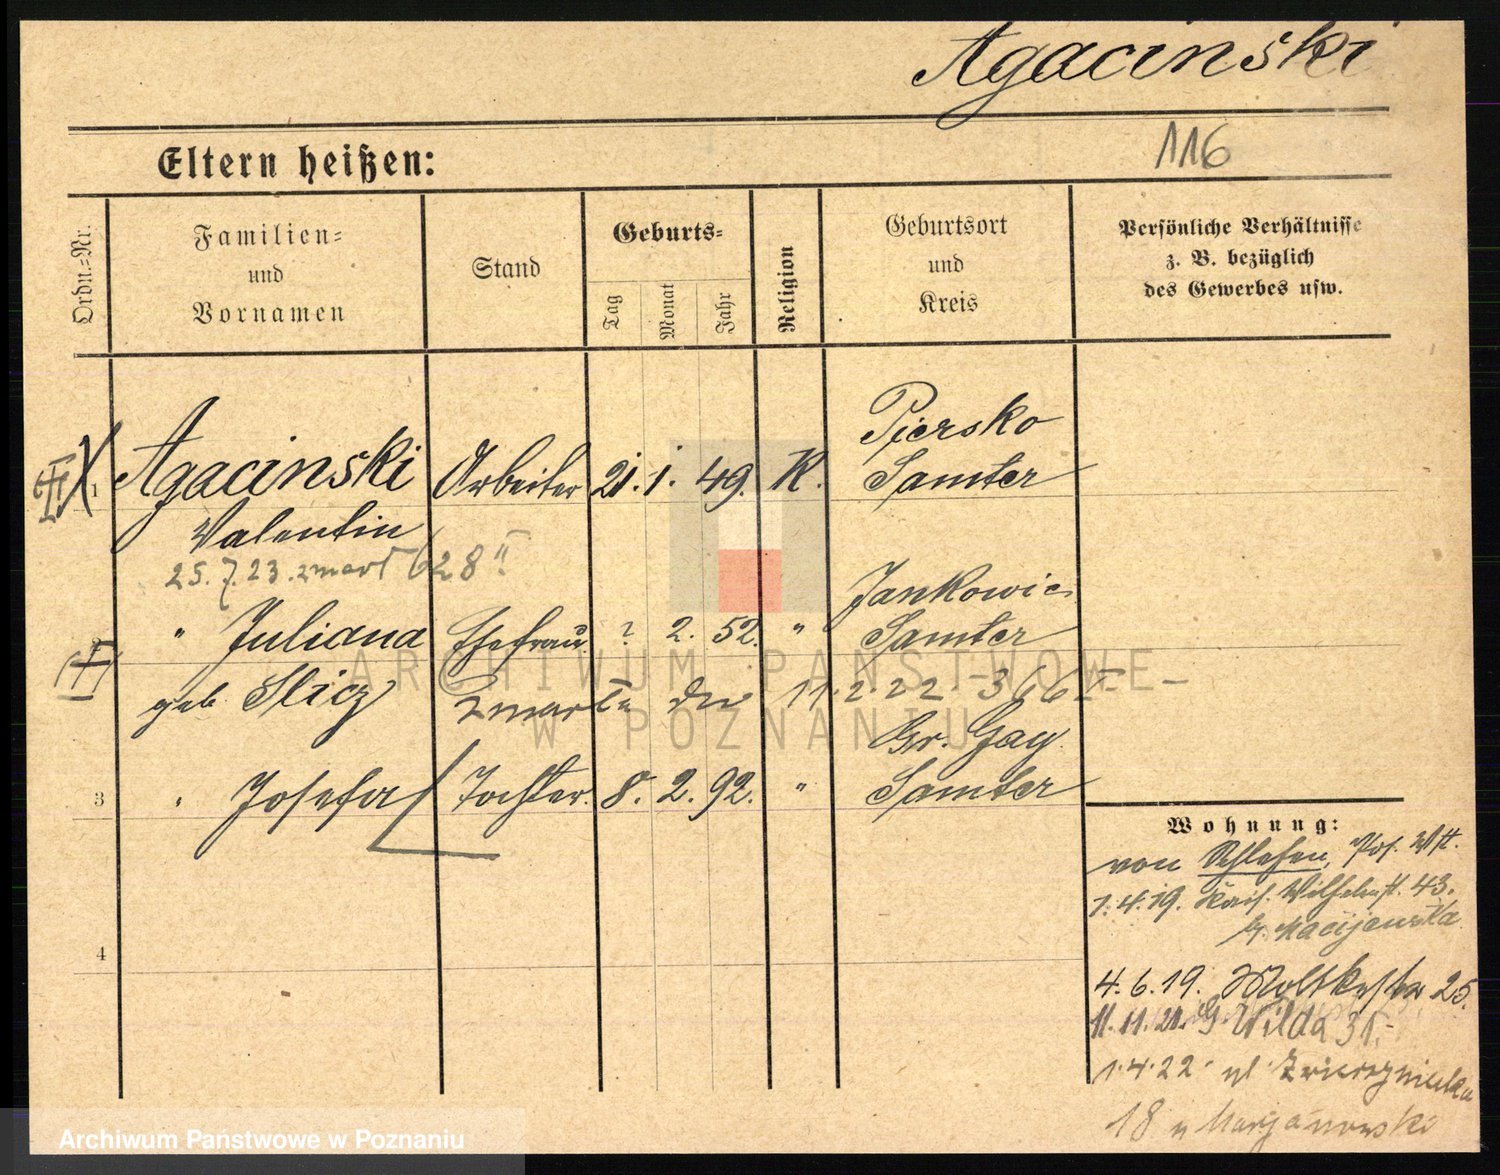 Agacinski
116
Eltern heißen:
Ordn.=Nr.
Familien=
und
Vornamen
Stand
Geburts=
Tag
Monat
Jahr
Religion
Geburtsort
und
Kreis
Persönliche Verhältnisse
z. B. bezüglich
des Gewerbes usw.
1 Agacinski Arbeiter 21. 1. 49. K. Piersko
Samter
Valentin
25.7.23. zmarł 628 II
" Juliana Ehefrau ? 2. 52. " Jankowic
Samter
geb. Slicz
zmarła dn 11.2.22 - 366 I -
3 " Josefa Tochter. 8. 2. 92. " Gr. Gay
Samter
4
Wohnung:
von Schlehen, Pos. Wst.
1.4.19. Kais. Wilhelmst. 43.
b. Macijewska
4.6.19. Moltkestr 25.
11.11.21. G. Wilda 31.-
1.4.22 ul Zwierzyniecka
18 u Marjanowski
ARCHIWUM PAŃSTWOWE
W POZNANIU
Archiwum Państwowe w Poznaniu